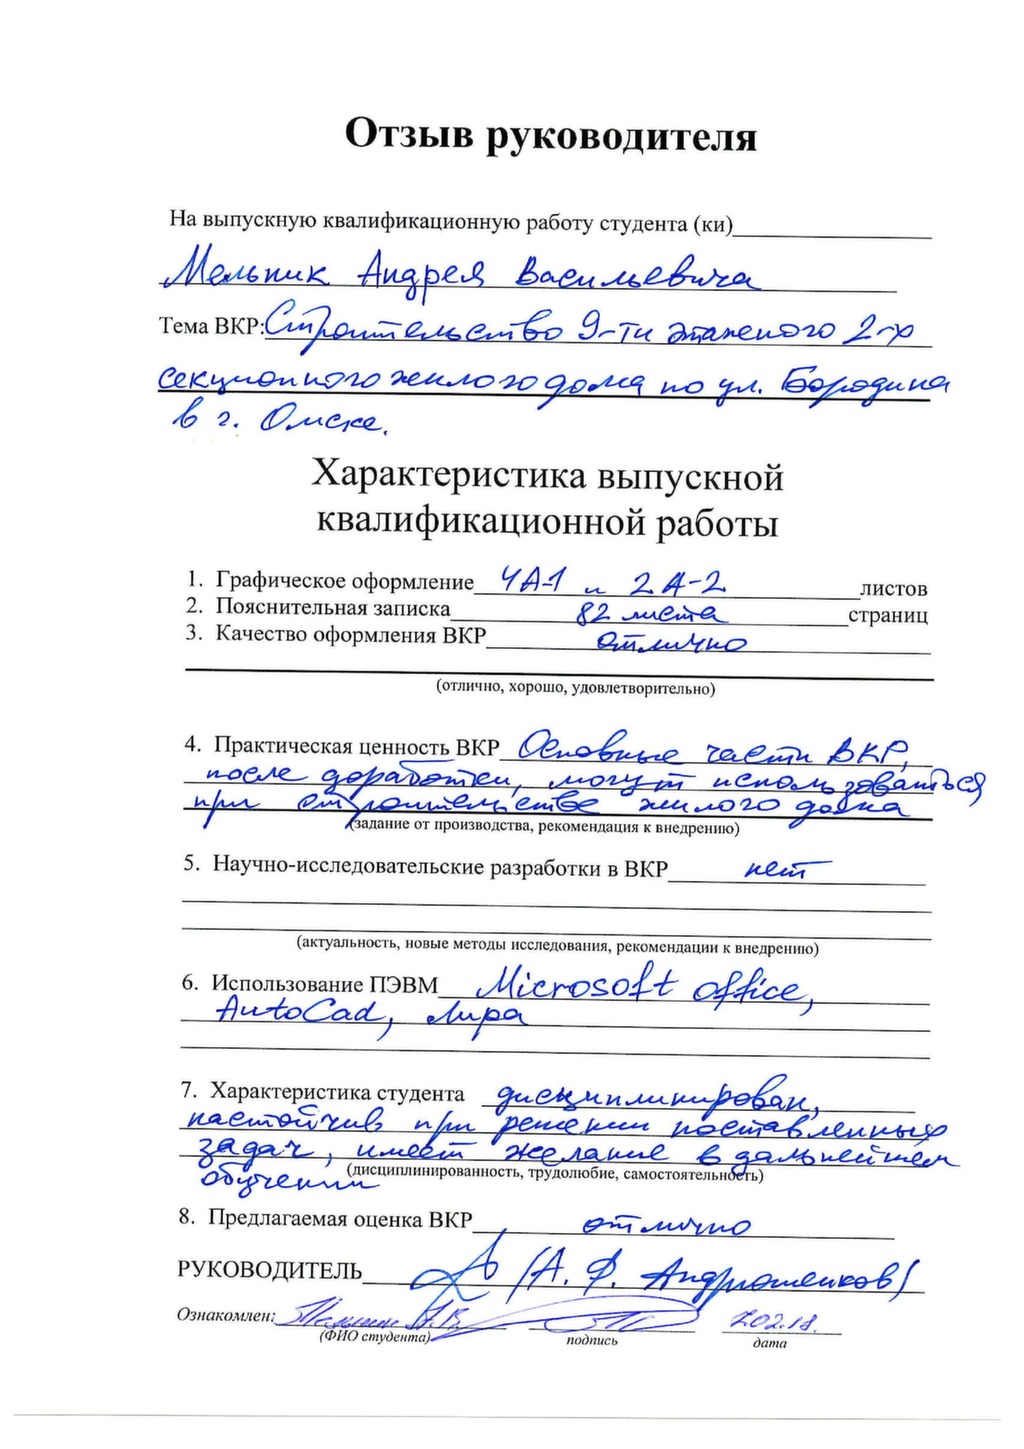 Отзыв руководителя
На выпускную квалификационную работу студента (ки)
Мельник Андрея Васильевича
Тема ВКР: Строительство 9-ти этажного 2-х
секционного жилого дома по ул. Бородина
в г. Омске.
Характеристика выпускной
квалификационной работы
1. Графическое оформление 4А-1 и 2А-2 листов
2. Пояснительная записка 82 листа страниц
3. Качество оформления ВКР отлично
(отлично, хорошо, удовлетворительно)
4. Практическая ценность ВКР Основные части ВКР,
после доработки, могут использоваться
при строительстве жилого дома
(задание от производства, рекомендация к внедрению)
5. Научно-исследовательские разработки в ВКР нет
(актуальность, новые методы исследования, рекомендации к внедрению)
6. Использование ПЭВМ Microsoft office,
AutoCad, Лира
7. Характеристика студента дисциплинирован,
настойчив при решении поставленных
задач, имеет желание в дальнейшем
(дисциплинированность, трудолюбие, самостоятельность)
обучении
8. Предлагаемая оценка ВКР отлично
РУКОВОДИТЕЛЬ (А. Ф. Андрюшенков)
Ознакомлен: А.В.
(ФИО студента) подпись дата